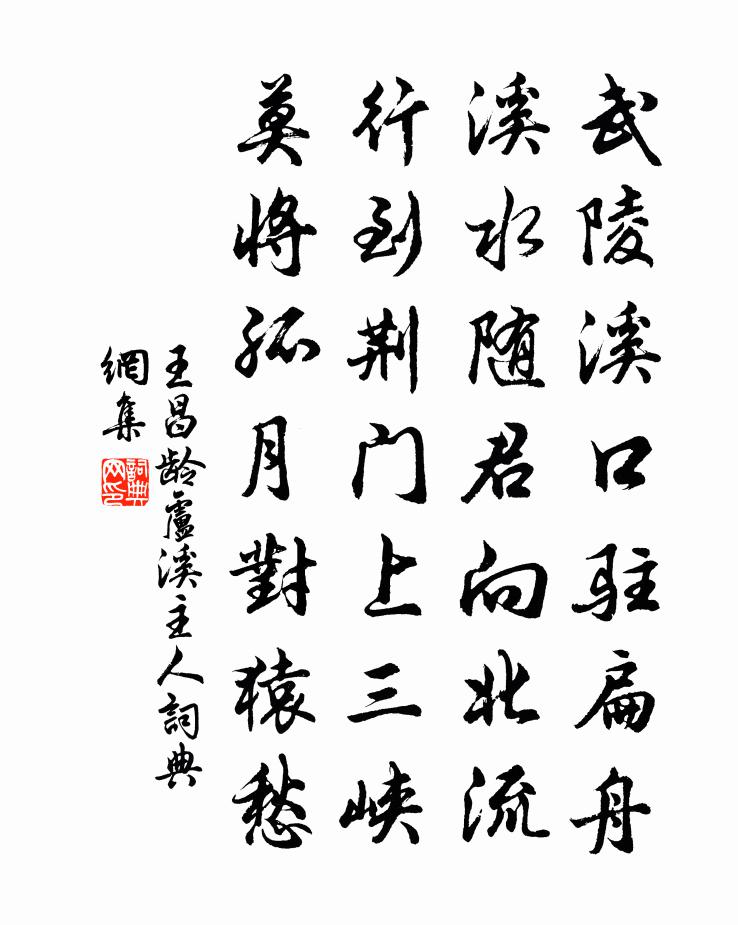 武陵溪口驻扁舟
溪水随君向北流
行到荆门上三峡
莫将孤月對猿愁
王昌龄盧溪主人詞典
網集
詞典
网印